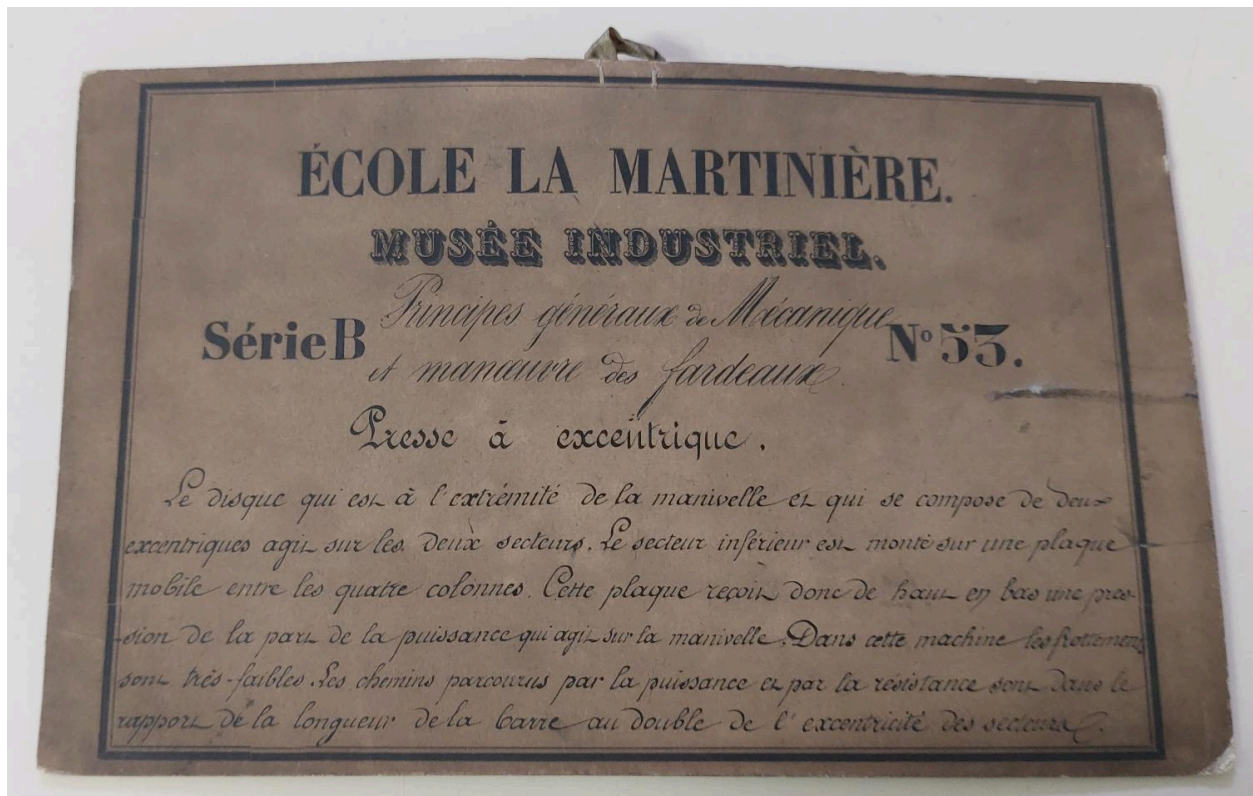 ÉCOLE LA MARTINIÈRE.
MUSÉE INDUSTRIEL.
Série B Principes généraux de Mécanique N° 53.
et manœuvre des fardeaux.
Presse à excentrique.
Le disque qui est à l'extrémité de la manivelle et qui se compose de deux
excentriques agit sur les deux secteurs. Le secteur inférieur est monté sur une plaque
mobile entre les quatre colonnes. Cette plaque reçoit donc de haut en bas une pres-
-sion de la part de la puissance qui agit sur la manivelle. Dans cette machine les frottements
sont très-faibles. Les chemins parcourus par la puissance et par la résistance sont dans le
rapport de la longueur de la barre au double de l'excentricité des secteurs.